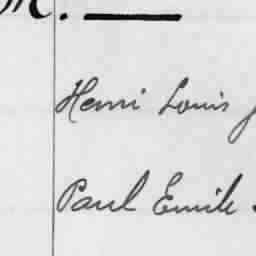 Henri Louis
Paul Emile